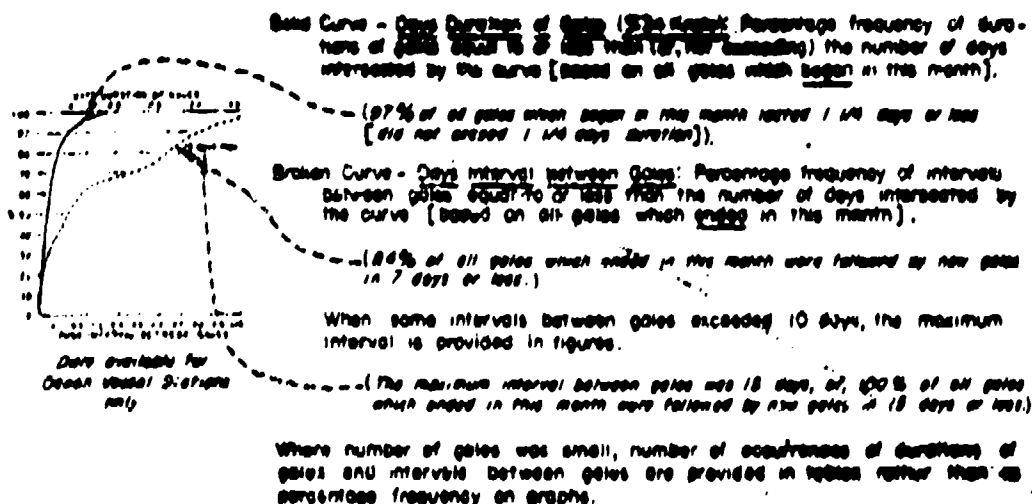 Solid Curve - Days Duration of Gales Percentage frequency of dura-
tions of gales equal to or less than (or, not exceeding) the number of days
intersected by the curve [based on all gales which began in this month].
(97% of all gales which began in this month lasted 1 1/4 days or less
[did not exceed 1 1/4 days duration]).
Broken Curve - Days Interval between Gales: Percentage frequency of intervals
between gales equal to or less than the number of days intersected by
the curve [based on all gales which ended in this month].
(84% of all gales which ended in this month were followed by new gales
in 7 days or less.)
When some intervals between gales exceeded 10 days, the maximum
interval is provided in figures.
Data available for
Ocean Vessel Stations
only
(The maximum interval between gales was 18 days, or, 100% of all gales
which ended in this month were followed by new gales in 18 days or less.)
Where number of gales was small, number of occurrences of durations of
gales and intervals between gales are provided in tables rather than as
percentage frequency on graphs.